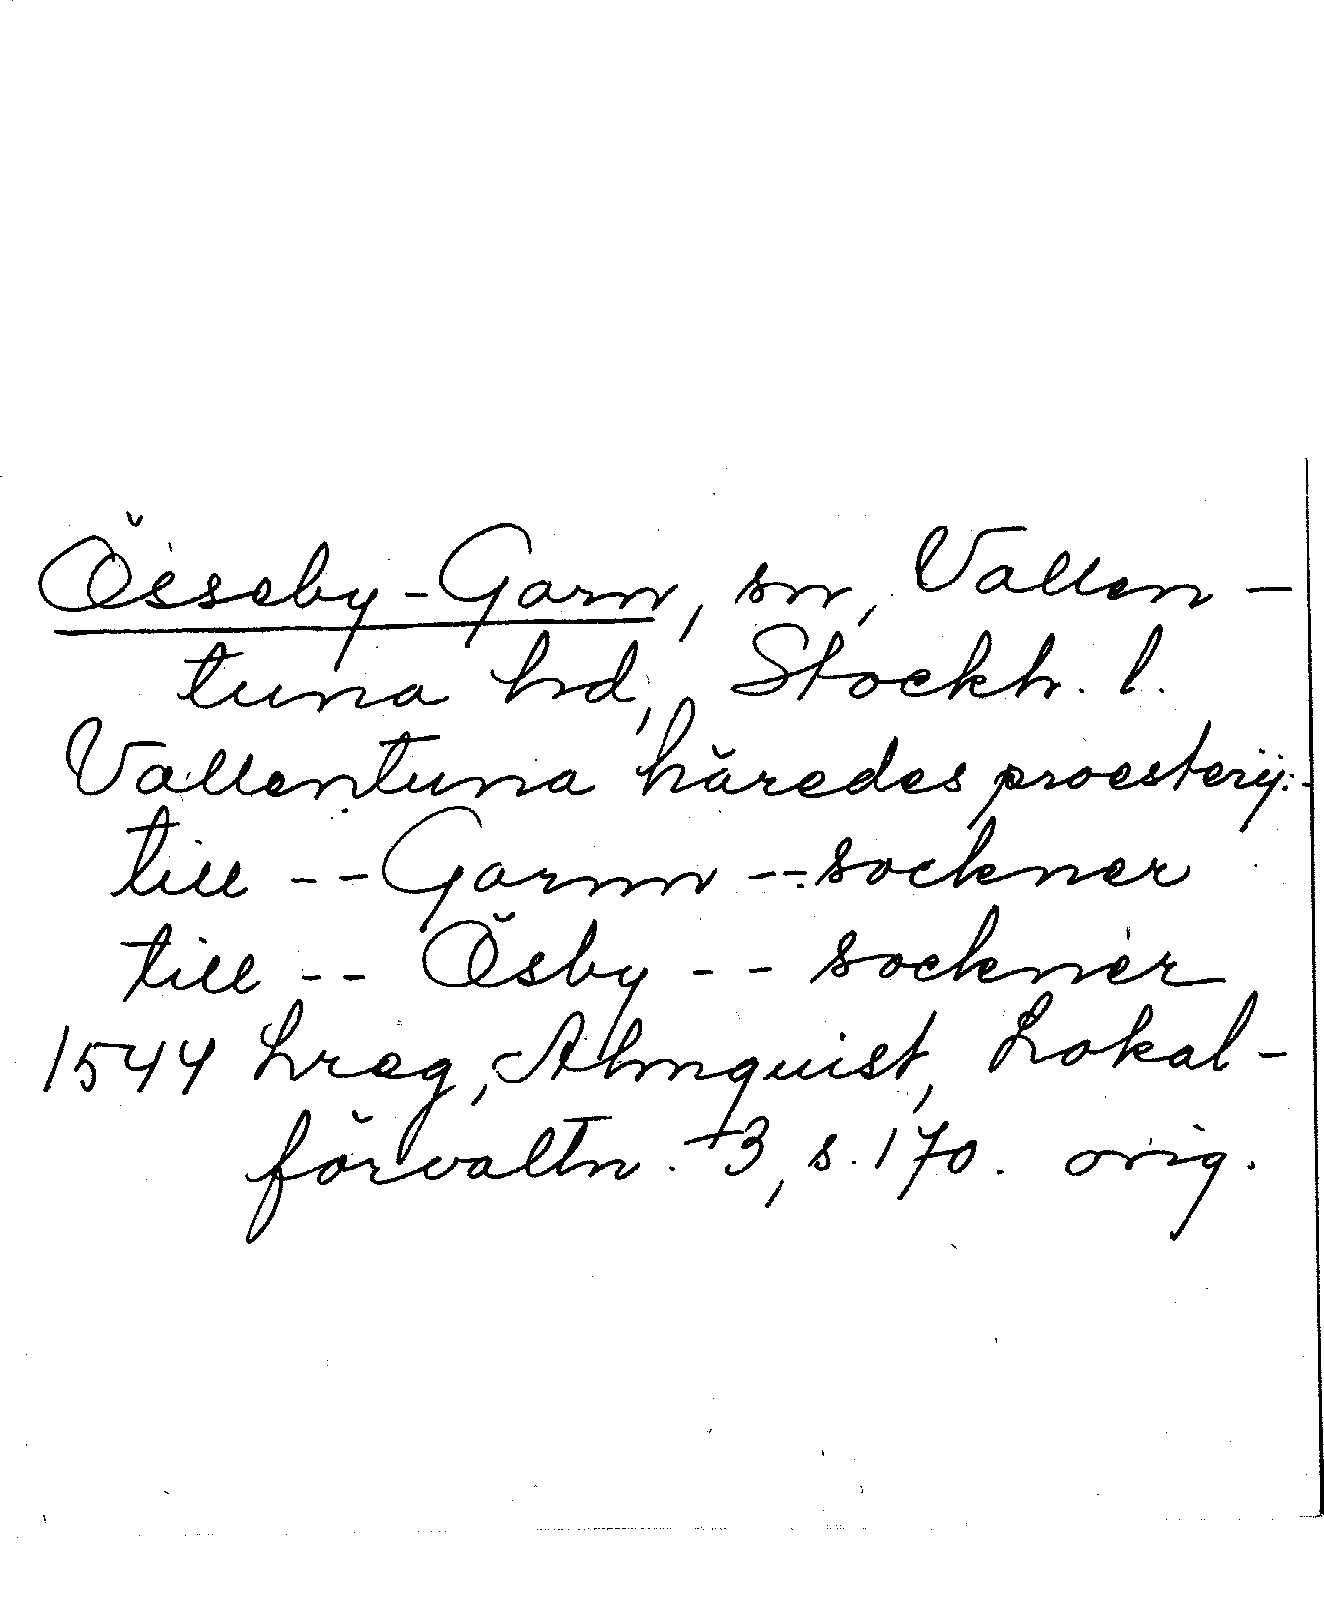 Össeby-Garn, sn, Vallen-
tuna hd, Stockh. l.
Vallentuna häredes proesterij:
till -- Garnn -- sockner
till -- Ösby -- sockner
1544 Lreg, Almquist, Lokal-
förvaltn. 3, s. 170. orig.